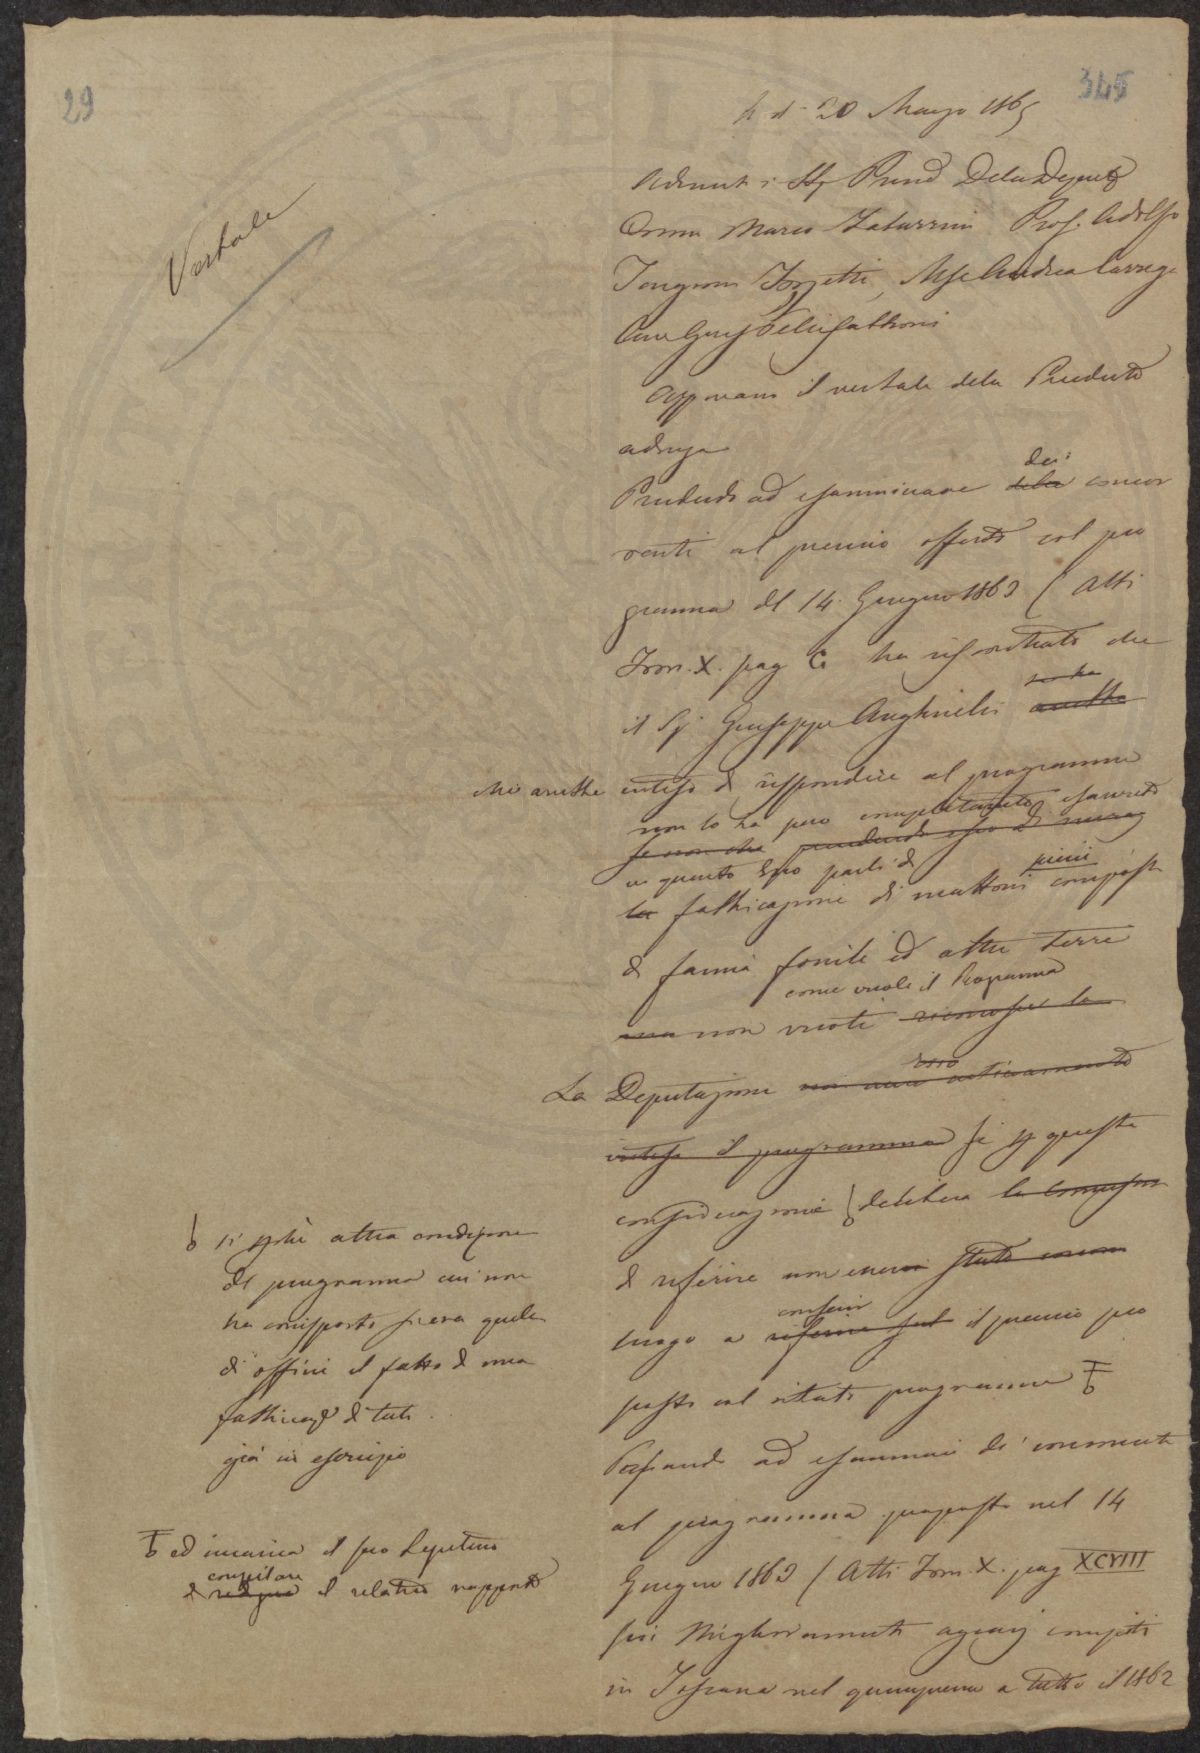 29
345
20 Marzo 1865
Verbale
Adunati i Sigg Presid Della Deput
Marco Tabarrini Prof. Adolfo
Targioni Tozzetti, Mse Andrea Carrega
Cav
Approvano il verbale della Precedente
adunza
Prendendo ad esamminare della dei concor
renti al premio offerto col pro
gramma del 14. Giugno 1863 ( Atti
Tom. X. pag C. ha riscontrato che
il Sig. Giuseppe
che avrebbe inteso di rispondere al programma
non lo ha però completamente esaurito
in quanto Esso parli di
la fabbricazione di mattoni pieni composti
di farina fossile ed altre terre
come vuole il Programma
non vuoti
La Deputazione
inteso il programma si p queste
considerazioni delibera
di riferire non esservi
conferir
luogo a riferire sul il premio pro
posto col citato programma
Passando ad esaminare di concorrenti
al programma proposto nel 14
Giugno 1863 ( Atti Tom. X. pag XCVIII
sui Miglioramenti agrarj compiti
in Toscana nel quinquennio a tutto il 1862
altra condizione
del programma cui non
ha corrisposto si era quella
di offrire il fatto di una
fabbricaz di tali
già in esercizio
ed incarica il suo Segretario
compilare
di redigere il relativo rapporto